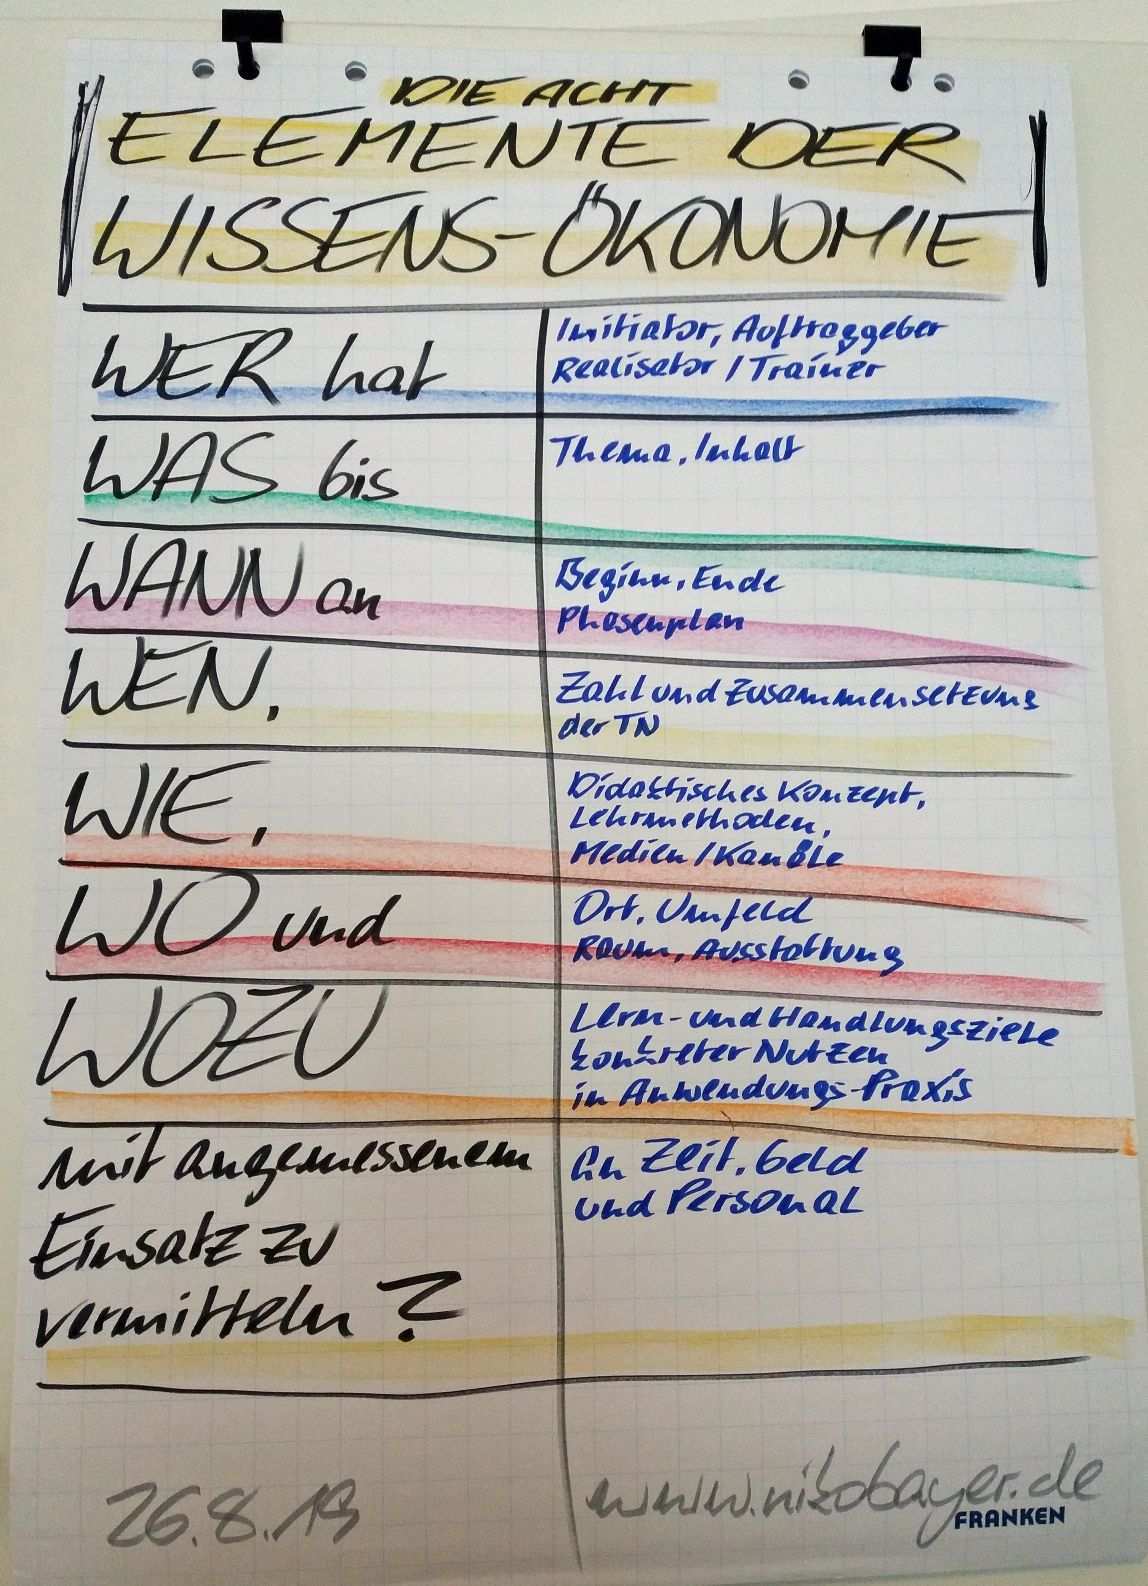 DIE ACHT
ELEMENTE DER
WISSENS-ÖKONOMIE
WER hat
Initiator, Auftraggeber
Realisator / Trainer
WAS bis
Thema, Inhalt
WANN an
Beginn, Ende
Phasenplan
WEN,
Zahl und Zusammensetzung
der TN
WIE,
Didaktisches Konzept,
Lehrmethoden,
Medien / Kanäle
WO und
Ort, Umfeld
Raum, Ausstattung
WOZU
Lern- und Handlungsziele
konkreter Nutzen
in Anwendungs-Praxis
mit angemessenem
Einsatz zu
vermitteln?
an Zeit, Geld
und Personal
26.8.19
www.nikobayer.de
FRANKEN